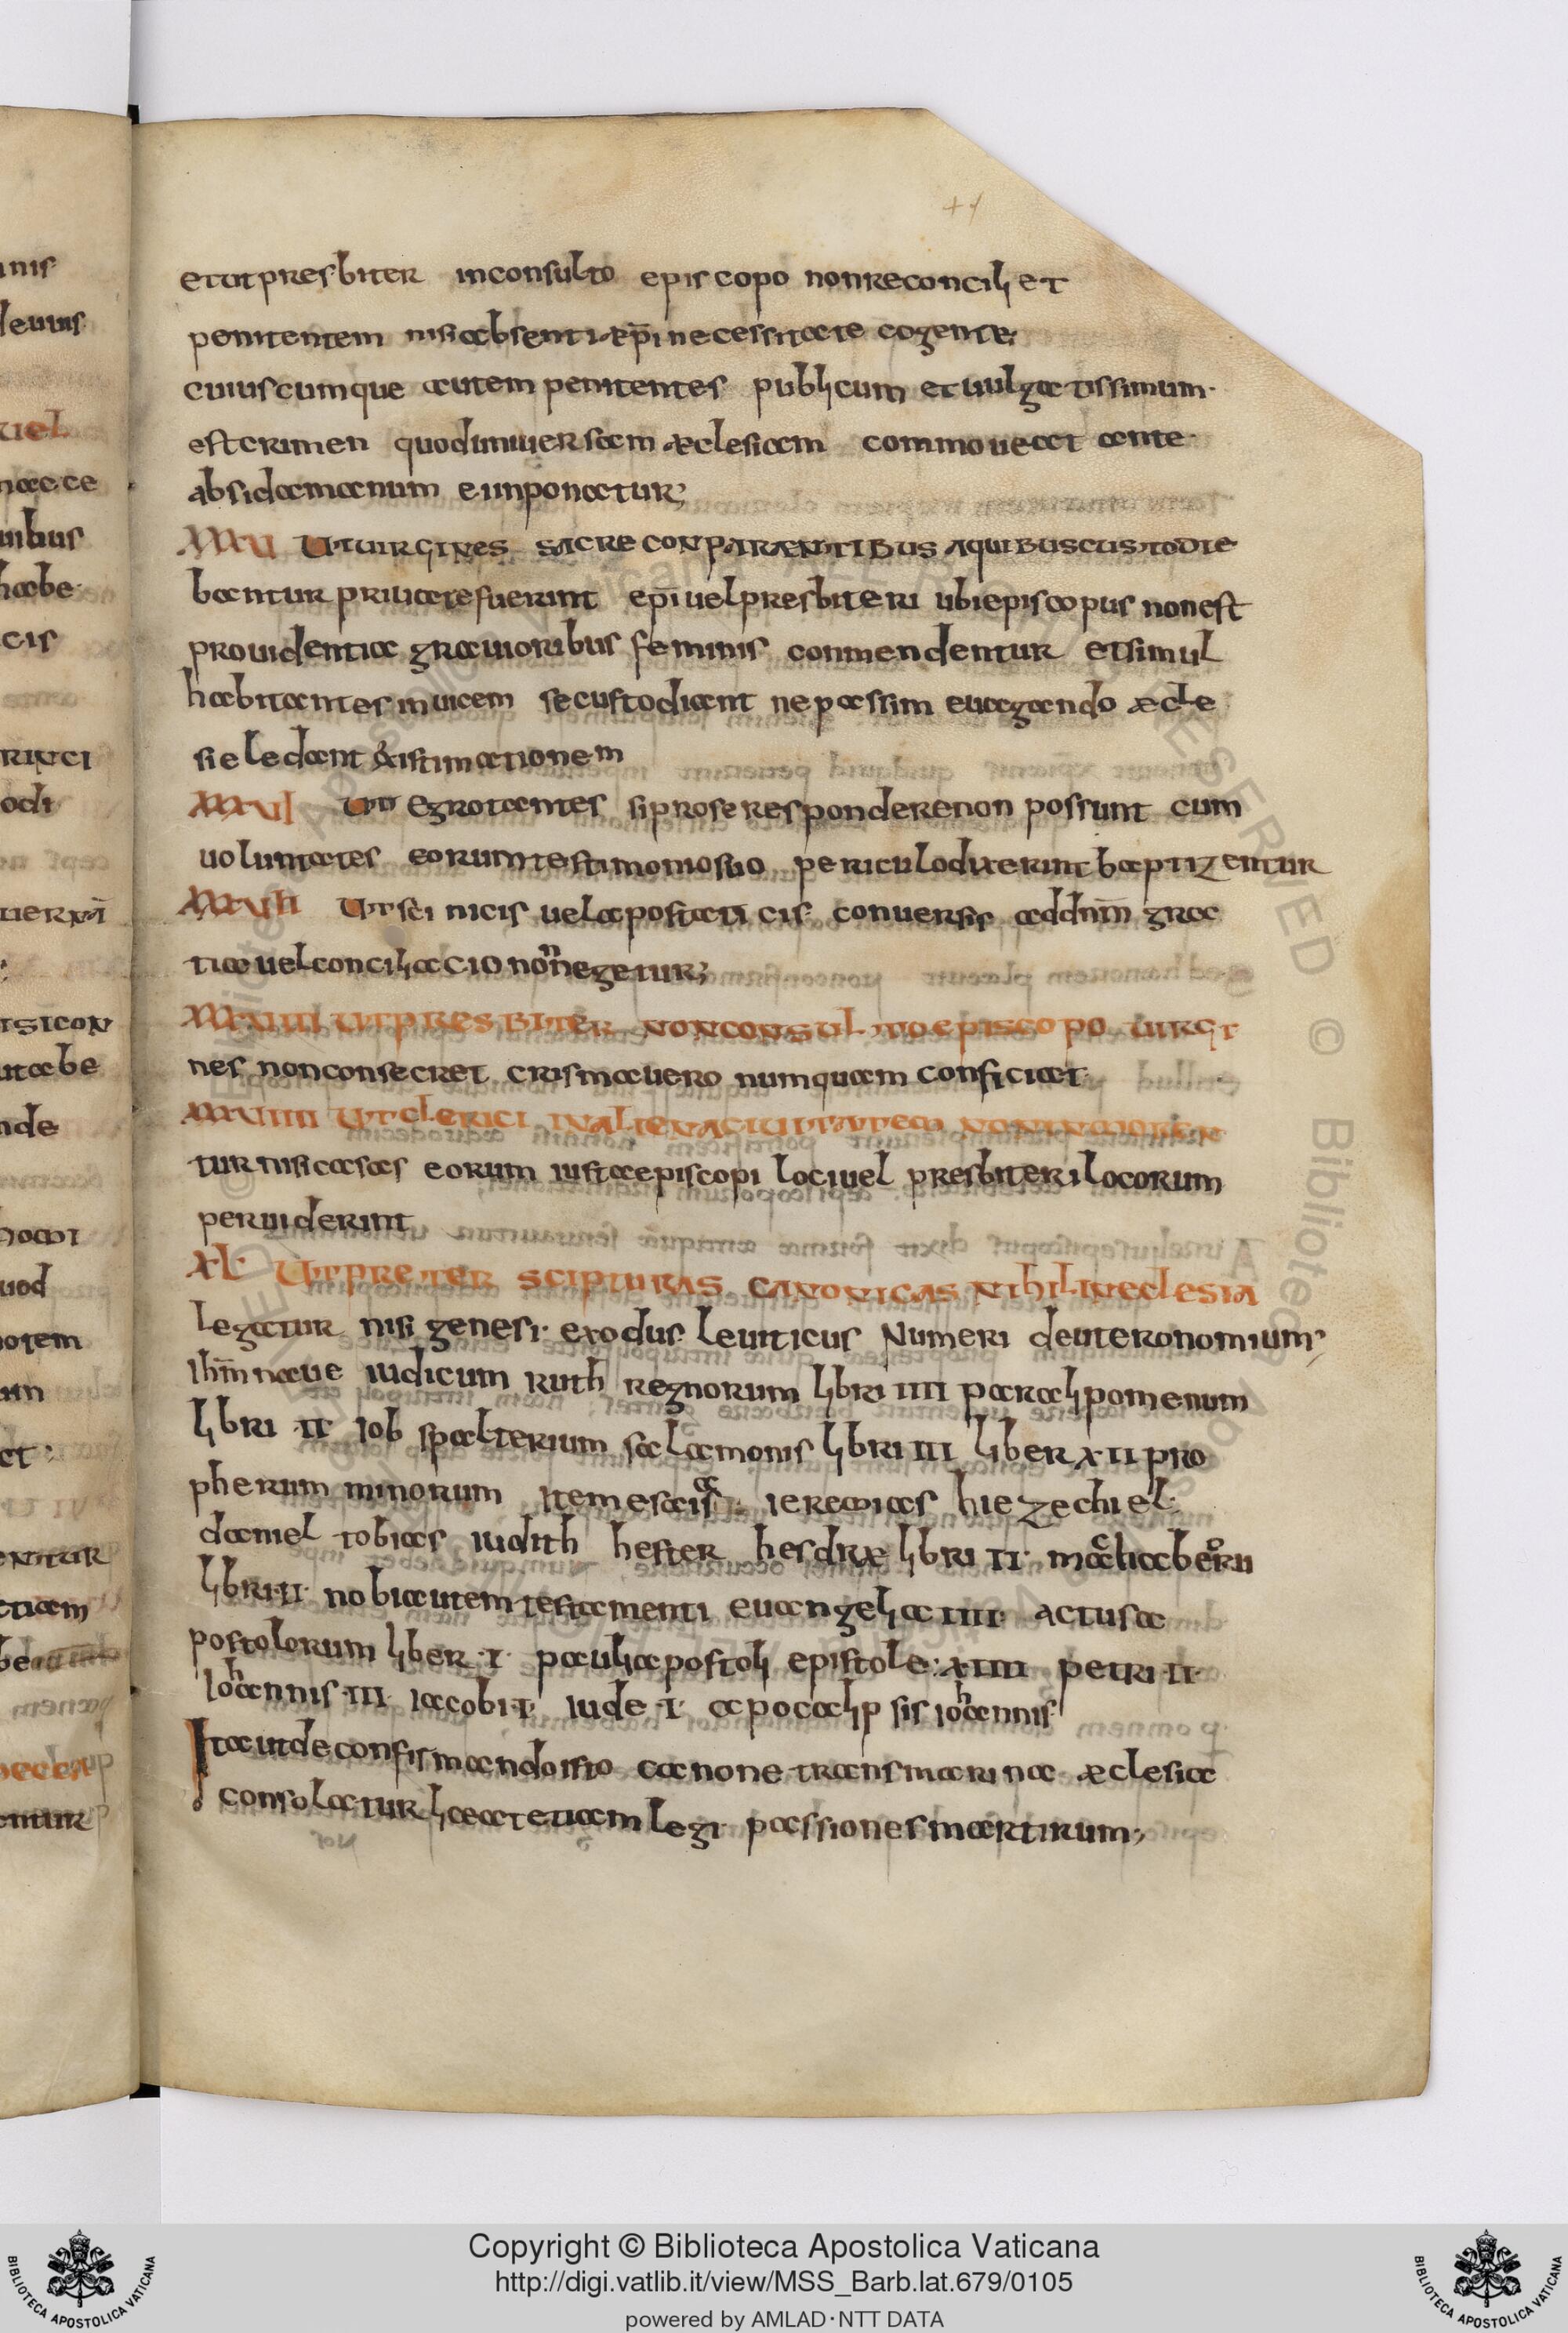 et ut presbiter inconsulto episcopo non reconciliet
penitentem nisi absenti epī necessitate cogente;
cuiuscumque autem penitentes publicum et uulgatissimum·
est crimen quod uniuersam æclesiam commoueat ante·
absida manum ei inponatur;
XXXU Ut uirgines sacre con parentibus a quibus custodie
bantur priuate fuerint epī uel presbiteri ubi episcopus non est
prouidentia grauioribus feminis conmendentur et simul
habitantes inuicem se custodiant ne passim euagando æcle
sie ledant existimationem
XXXVI Ut egrotantes si pro se respondere non possunt cum
uoluntates eorum testimonio suo periculo dixerint baptizentur
XXXVII Ut scinicis uel apostaticis conuersis ad dnm̄ gra
tia uel conciliacio non negetur;
XXXVIII Ut presbiter non consulto episcopo uirgi
nes non consecret crisma uero numquam conficiat
XXXVIIII Ut clerici in aliena ciuitatem non inmoren
tur nisi casas eorum iusta episcopi loci uel presbiteri locorum
peruiderint
XL Ut preter scipturas canonicas nihil in eclesia
legatur nisi genesi· exodus leuiticus Numeri deuteronomium;
Ihm̄ naue iudicum ruth regnorum libri IIII paralipomenum
libri ·II· Iob spalterium salamonis libri III liber XII pro
pherum minorum Item esaias· ieremias hiezechiel·
daniel tobias iudith hester hesdræ libri II· machabeoru
libri·II· nobi autem testamenti euangelia IIII· actus a
postolorum liber·I· pauli apostoli epistole·XIIII petri·II·
Iohannis·III· iacobi·I· iude·I· apocalipsis iohannis
Ita ut de confirmando isto canone transmarina æclesia
consolatur liaeat etiam legi passiones martirum;
Copyright © Biblioteca Apostolica Vaticana
http://digi.vatlib.it/view/MSS_Barb.lat.679/0105
powered by AMLAD·NTT DATA